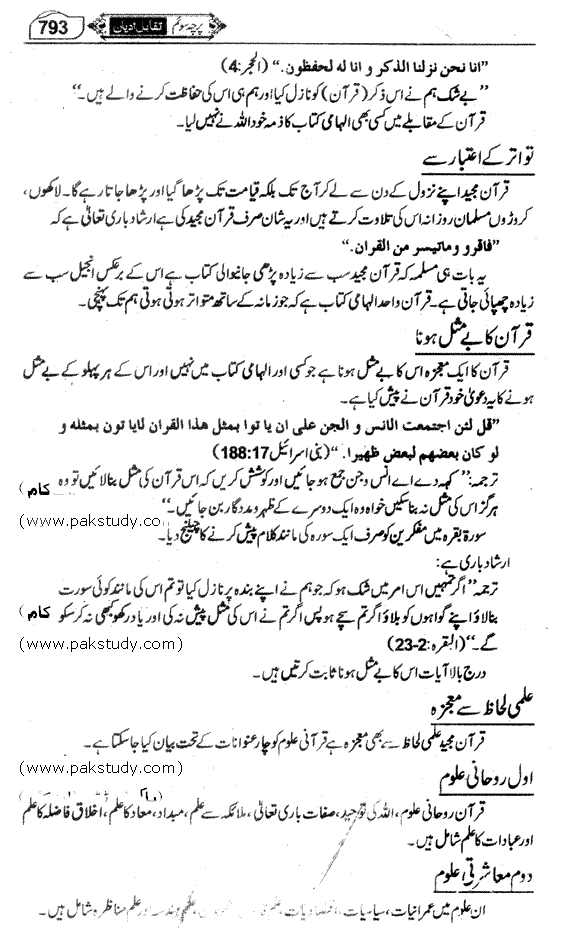 793 تقابل ادیان پرچہ سوئم
"انا نحن نزلنا الذکر و انا له لحفظون." (الحجر:4)
"بے شک ہم نے اس ذکر (قرآن) کو نازل کیا اور ہم ہی اس کی حفاظت کرنے والے ہیں۔"
قرآن کے مقابلے میں کسی بھی الہامی کتاب کا ذمہ خود اللہ نے نہیں لیا۔
تواتر کے اعتبار سے
قرآن مجید اپنے نزول کے دن سے لے کر آج تک بلکہ قیامت تک پڑھا گیا اور پڑھا جاتا رہے گا۔ لاکھوں،
کروڑوں مسلمان روزانہ اس کی تلاوت کرتے ہیں اور یہ شان صرف قرآن مجید کی ہے ارشاد باری تعالیٰ ہے کہ
"فاقرو وماتیسر من القران."
یہ بات ہی مسلمہ کہ قرآن مجید سب سے زیادہ پڑھی جانیوالی کتاب ہے اس کے برعکس انجیل سب سے
زیادہ چھپائی جاتی ہے۔ قرآن واحد الہامی کتاب ہے کہ جو زمانہ کے ساتھ متواتر ہوتی ہوتی ہم تک پہنچی۔
قرآن کا بے مثل ہونا
قرآن کا ایک معجزہ اس کا بے مثل ہونا ہے جو کسی اور الہامی کتاب میں نہیں اور اس کے ہر پہلو کے بے مثل
ہونے کا یہ دعویٰ خود قرآن نے پیش کیا ہے۔
"قل لئن اجتمعت الانس و الجن علی ان یا توا بمثل هذا القران لایا تون بمثله و
لو کان بعضهم لبعض ظهیرا." (بنی اسرائیل 188:17)
ترجمہ: "کہہ دے اے انس وجن جمع ہو جائیں اور کوشش کریں کہ اس قرآن کی مثل بنا لائیں تو وہ
ہرگز اس کی مثل نہ بنا سکیں خواہ وہ ایک دوسرے کے ظہیر و مددگار بن جائیں۔" کام )
(www.pakstudy.co
سورۃ بقرہ میں مفکرین کو صرف ایک سورہ کی مانند کلام پیش کرنے کا چیلنج دیا۔
ارشاد باری ہے:
ترجمہ "اگر تمہیں اس امر میں شک ہو کہ جو ہم نے اپنے بندہ پر نازل کیا تو تم اس کی مانند کوئی سورت
بنا لاؤ اپنے گواہوں کو بلاؤ اگر تم سچے ہو پس اگر تم نے اس کی مثل پیش نہ کی اور یاد رکھو کبھی نہ کر سکو کام )
گے۔" (البقرہ:2-23) (www.pakstudy.com)
درج بالا آیات اس کا بے مثل ہونا ثابت کرتیں ہیں۔
علمی لحاظ سے معجزہ
قرآن مجید علمی لحاظ سے بھی معجزہ ہے قرآنی علوم کو چار عنوانات کے تحت بیان کیا جا سکتا ہے۔
(www.pakstudy.com)
اول روحانی علوم
قرآن روحانی علوم، اللہ کی توحید، صفات باری تعالیٰ، ملائکہ سے علم، مبداد، معاد کا علم، اخلاق فاضلہ کا علم
اور عبادات کا علم شامل ہیں۔
دوم معاشرتی علوم
ان علوم میں عمرانیات، سیاسیات، اقتصادیات، علم ہندسہ اور علم مناظرہ شامل ہیں۔